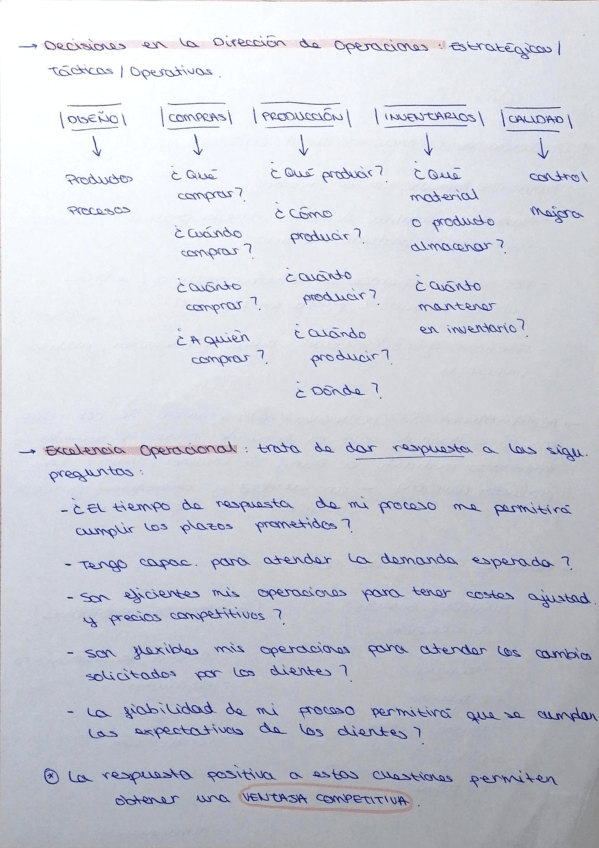 → Decisiones en la Dirección de Operaciones: Estratégicas /
Tácticas / Operativas.
|DISEÑO| |COMPRAS| |PRODUCCIÓN| |INVENTARIOS| |CALIDAD|
↓ ↓ ↓ ↓ ↓
Productos
Procesos
¿Qué
comprar?
¿Cuándo
comprar?
¿Cuánto
comprar?
¿A quién
comprar?
¿Qué producir?
¿Cómo
producir?
¿Cuánto
producir?
¿Cuándo
producir?
¿Dónde?
¿Qué
material
o producto
almacenar?
¿Cuánto
mantener
en inventario?
control
mejora
→ Excelencia Operacional: trata de dar respuesta a las sigu.
preguntas:
- ¿El tiempo de respuesta de mi proceso me permitirá
cumplir los plazos prometidos?
- Tengo capac. para atender la demanda esperada?
- Son eficientes mis operaciones para tener costes ajustad.
y precios competitivos?
- Son flexibles mis operaciones para atender los cambios
solicitados por los clientes?
- La fiabilidad de mi proceso permitirá que se cumplan
las expectativas de los clientes?
⊛ La respuesta positiva a estas cuestiones permiten
obtener una VENTAJA COMPETITIVA.